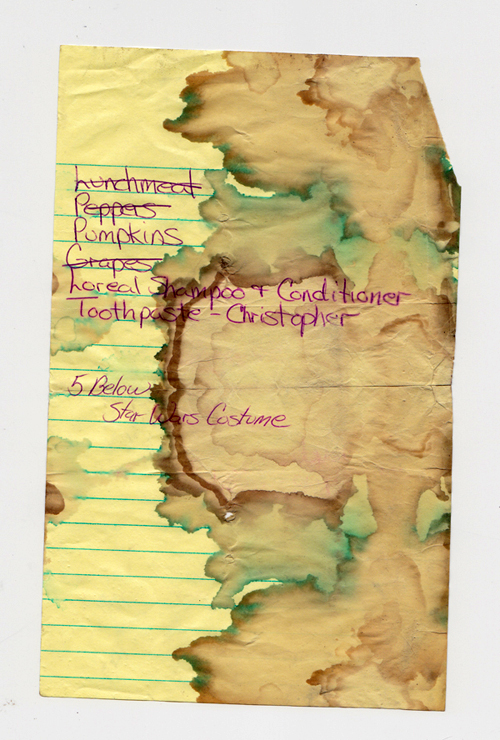 Lunchmeat
Peppers
Pumpkins
Grapes
Loreal Shampoo + Conditioner
Toothpaste - Christopher
5 Below
Star Wars Costume